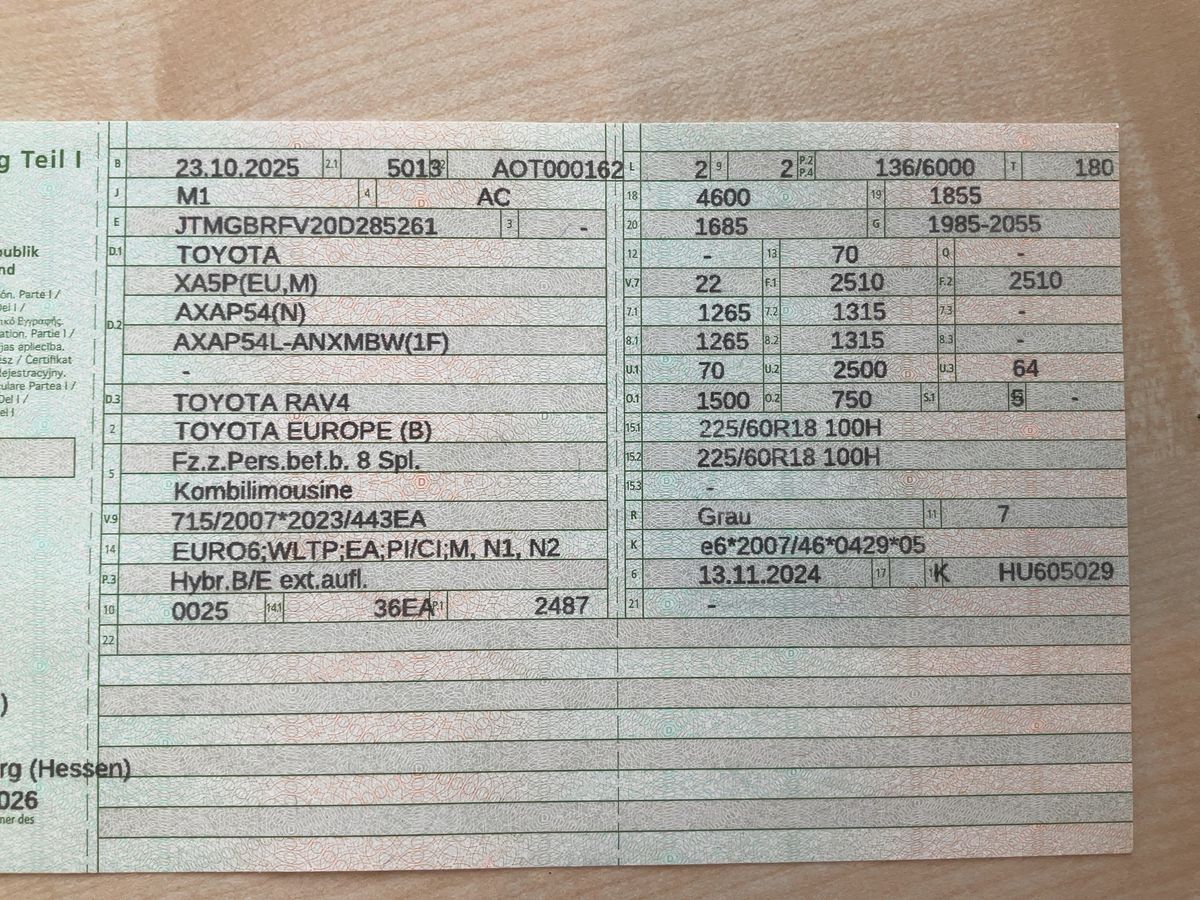 g Teil I
publik
nd
ón. Parte I /
Del I /
ικό Εγγραφής.
ation. Partie I /
jas apliecība.
ész / Certifikat
Rejestracyjny.
culare Partea I /
Del I /
el I
)
rg (Hessen)
026
mer des
B 23.10.2025 2.1 5013 2.2 AOT000162
J M1 4 AC
E JTMGBRFV20D285261 3 -
D.1 TOYOTA
XA5P(EU,M)
D.2 AXAP54(N)
AXAP54L-ANXMBW(1F)
-
D.3 TOYOTA RAV4
2 TOYOTA EUROPE (B)
5 Fz.z.Pers.bef.b. 8 Spl.
Kombilimousine
V.9 715/2007*2023/443EA
14 EURO6;WLTP;EA;PI/CI;M, N1, N2
P.3 Hybr.B/E ext.aufl.
10 0025 14.1 36EA P.1 2487
22
L 2 9 2 P.2 P.4 136/6000 T 180
18 4600 19 1855
20 1685 G 1985-2055
12 - 13 70 Q -
V.7 22 F.1 2510 F.2 2510
7.1 1265 7.2 1315 7.3 -
8.1 1265 8.2 1315 8.3 -
U.1 70 U.2 2500 U.3 64
O.1 1500 O.2 750 S.1 5 -
15.1 225/60R18 100H
15.2 225/60R18 100H
15.3 -
R Grau 11 7
K e6*2007/46*0429*05
6 13.11.2024 17 K HU605029
21 -